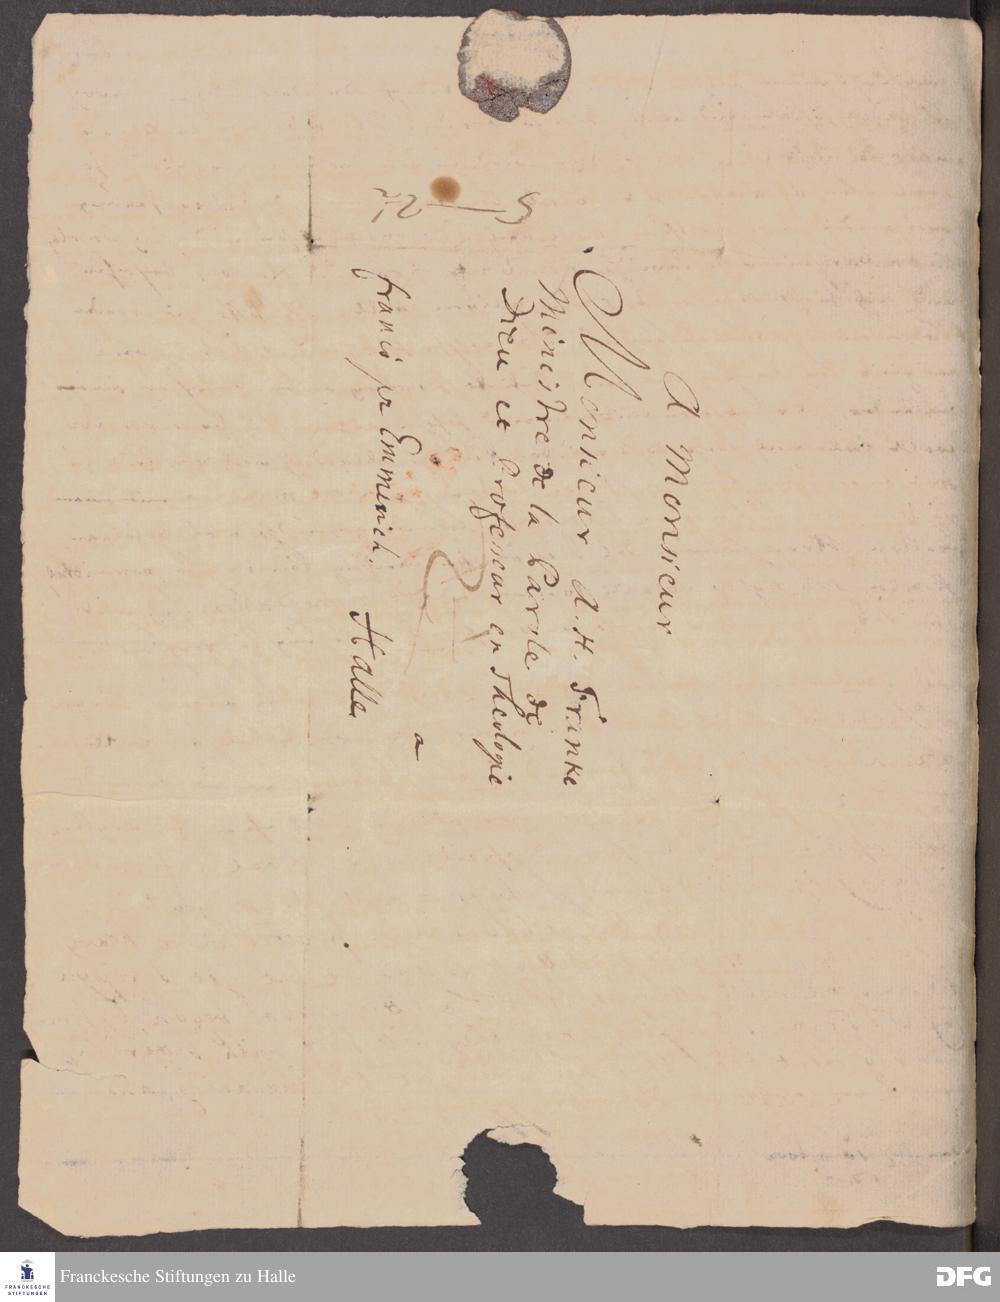 A Monsieur
Monsieur A. H. Franke
Ministre de la Parole de
Dieu et Professeur en Theologie
a
franco per Emmerich. Halle
Franckesche Stiftungen zu Halle
FRANCKESCHE
STIFTUNGEN
DFG